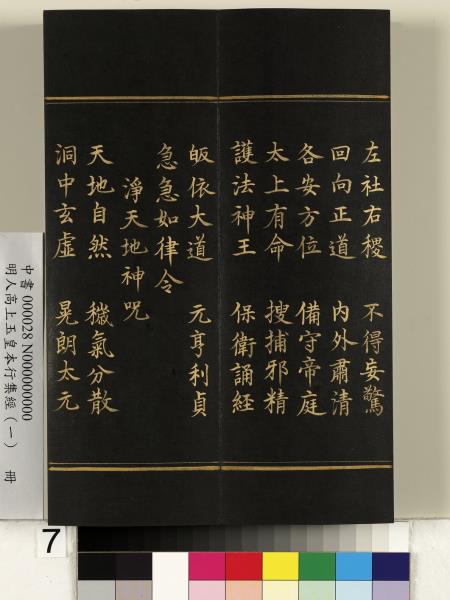 左社右稷　不得妄驚
回向正道　內外肅清
各安方位　備守帝庭
太上有命　搜捕邪精
護法神王　保衛誦經
皈依大道　元亨利貞
急急如律令
淨天地神咒
天地自然　穢氣分散
洞中玄虛　晃朗太元
中書 000028 N000000000
明人高上玉皇本行集經（一） 冊
7